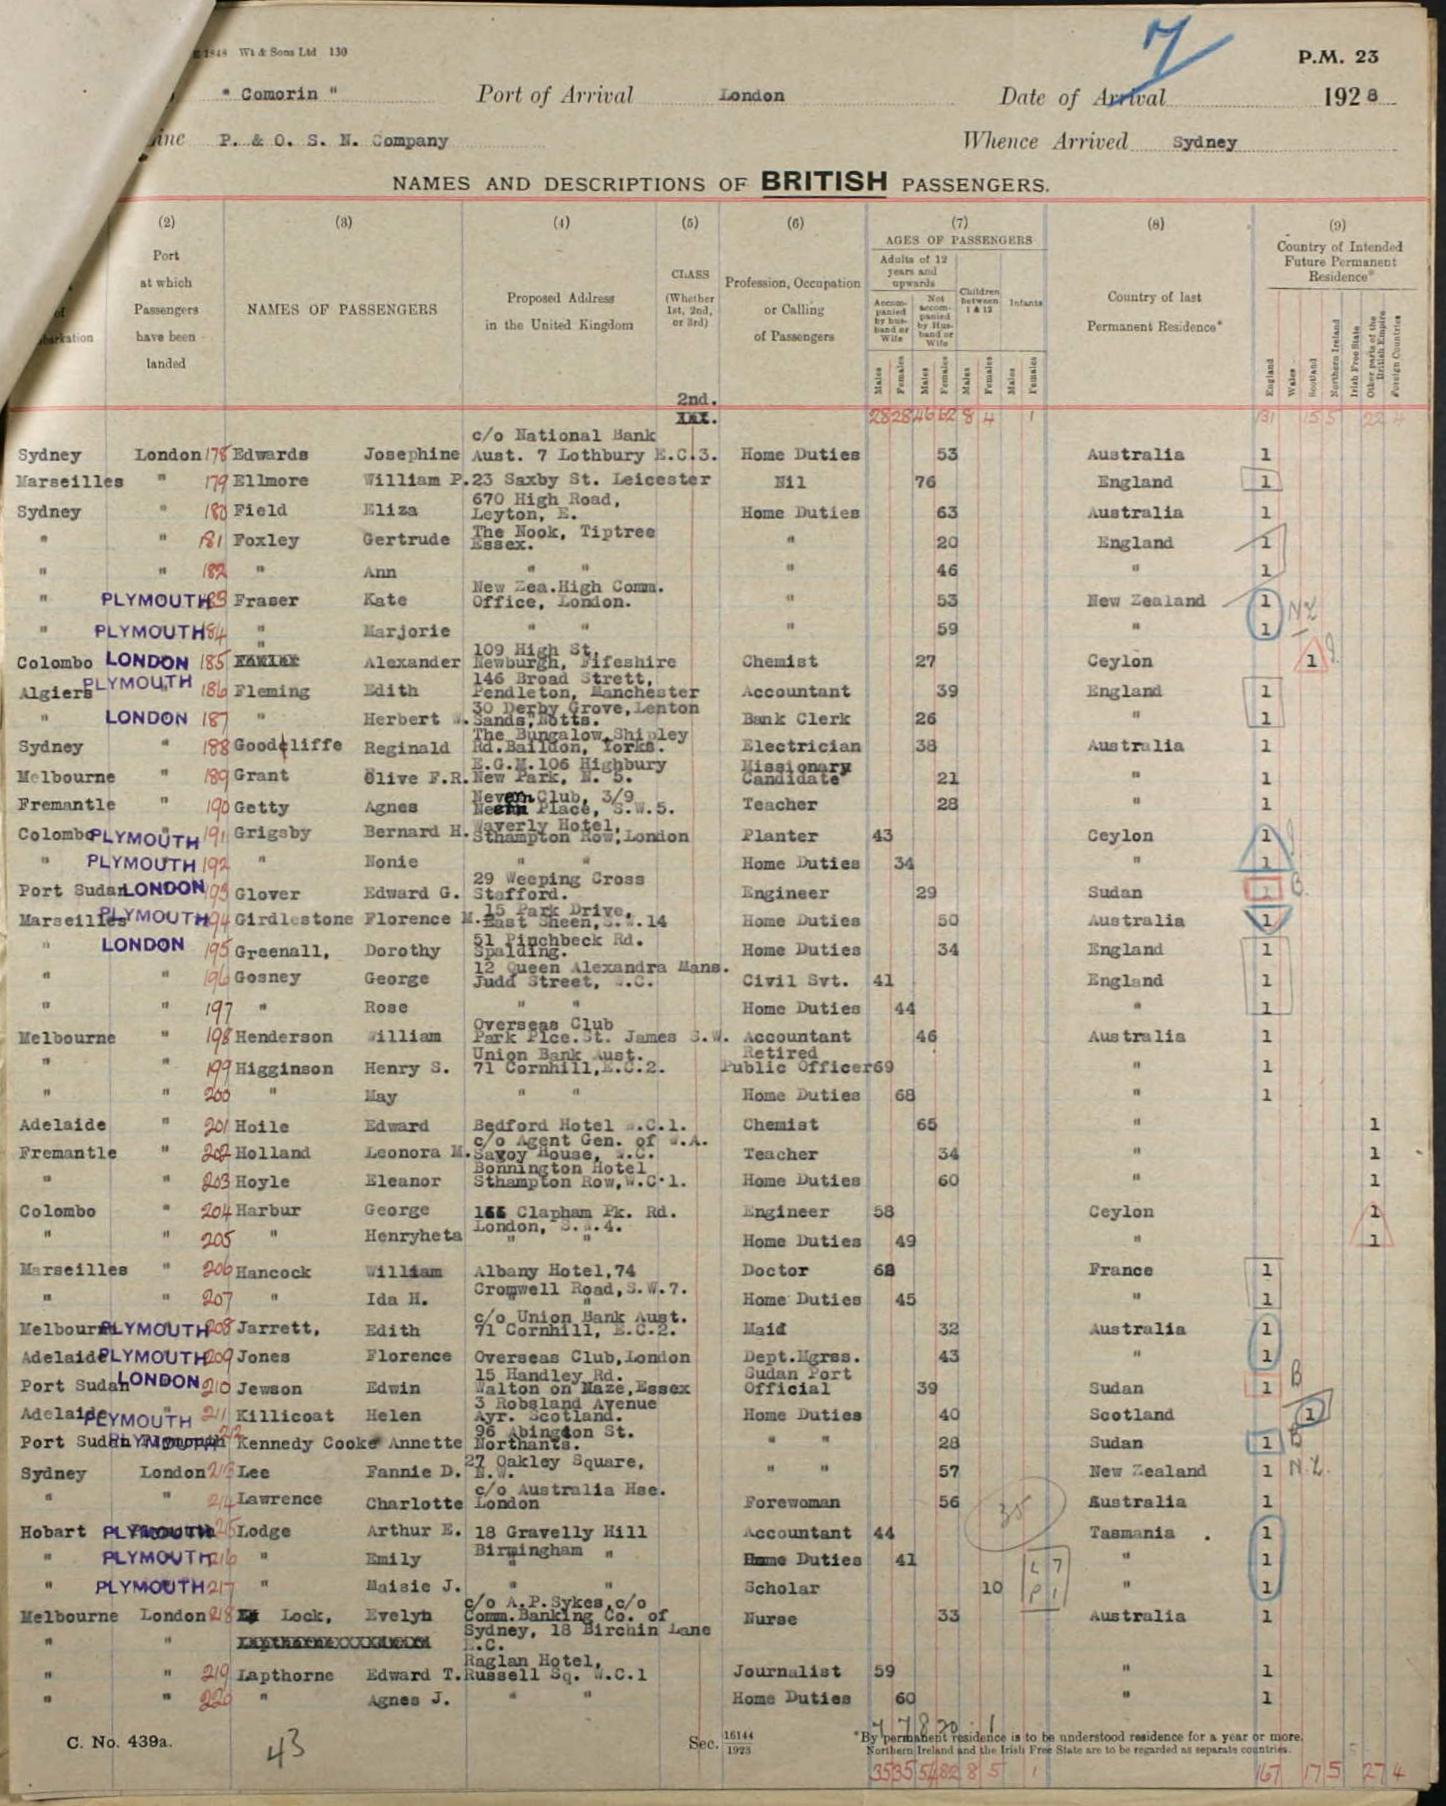 1848 Wt & Sons Ltd 130
7
P.M. 23
" Comorin " Port of Arrival London Date of Arrival 1928
ine P. & O. S. N. Company Whence Arrived Sydney
NAMES AND DESCRIPTIONS OF BRITISH PASSENGERS.
(2) (3) (4) (5) (6) (7) (8) (9)
Port at which Passengers have been landed
NAMES OF PASSENGERS
Proposed Address in the United Kingdom
CLASS (Whether 1st, 2nd, or 3rd)
Profession, Occupation or Calling of Passengers
AGES OF PASSENGERS
Adults of 12 years and upwards
Accompanied by husband or Wife
Not accompanied by Husband or Wife
Children between 1 & 12
Infants
Males Females Males Females Males Females Males Females
Country of last Permanent Residence*
Country of Intended Future Permanent Residence*
England Wales Scotland Northern Ireland Irish Free State Other parts of the British Empire Foreign Countries
2nd.
28 28 46 62 8 4 1 131 15 5 22 4
c/o National Bank
Sydney London 178 Edwards Josephine Aust. 7 Lothbury E.C.3. Home Duties 53 Australia 1
Marseilles " 179 Ellmore William P. 23 Saxby St. Leicester Nil 76 England 1
670 High Road,
Sydney " 180 Field Eliza Leyton, E. Home Duties 63 Australia 1
The Nook, Tiptree
" " 181 Foxley Gertrude Essex. " 20 England 1
" " 182 " Ann " " " 46 " 1
New Zea.High Comm.
" PLYMOUTH 183 Fraser Kate Office, London. " 53 New Zealand 1 N.Z
" PLYMOUTH 184 " Marjorie " " " 59 " 1
109 High St.
Colombo LONDON 185 " Alexander Newburgh, Fifeshire Chemist 27 Ceylon 1
146 Broad Strett,
Algiers PLYMOUTH 186 Fleming Edith Pendleton, Manchester Accountant 39 England 1
30 Derby Grove, Lenton
" LONDON 187 " Herbert W. Sands, Notts. Bank Clerk 26 " 1
The Bungalow, Shipley
Sydney " 188 Goodcliffe Reginald Rd. Baildon, Yorks. Electrician 38 Australia 1
E.G.M. 106 Highbury Missionary
Melbourne " 189 Grant Olive F.R. New Park, N. 5. Candidate 21 " 1
Nevern Club, 3/9
Fremantle " 190 Getty Agnes Place, S.W.5. Teacher 28 " 1
Waverly Hotel,
Colombo PLYMOUTH 191 Grigsby Bernard H. Sthampton Row, London Planter 43 Ceylon 1
" PLYMOUTH 192 " Nonie " " Home Duties 34 " 1
29 Weeping Cross
Port Sudan LONDON 193 Glover Edward G. Stafford. Engineer 29 Sudan 1
15 Park Drive,
Marseilles PLYMOUTH 194 Girdlestone Florence M. East Sheen, S.W.14 Home Duties 50 Australia 1
51 Pinchbeck Rd.
" LONDON 195 Greenall, Dorothy Spalding. Home Duties 34 England 1
12 Queen Alexandra Mans.
" " 196 Gosney George Judd Street, W.C. Civil Svt. 41 England 1
" " 197 " Rose " " Home Duties 44 " 1
Overseas Club
Melbourne " 198 Henderson William Park Plce. St. James S.W. Accountant 46 Australia 1
Union Bank Aust. Retired
" " 199 Higginson Henry S. 71 Cornhill, E.C.2. Public Officer 69 " 1
" " 200 " May " " Home Duties 68 " 1
Adelaide " 201 Hoile Edward Bedford Hotel W.C.1. Chemist 65 " 1
c/o Agent Gen. of W.A.
Fremantle " 202 Holland Leonora M. Savoy House, W.C. Teacher 34 " 1
Bonnington Hotel
" " 203 Hoyle Eleanor Sthampton Row, W.C.1. Home Duties 60 " 1
Colombo " 204 Harbur George Clapham Pk. Rd. Engineer 58 Ceylon 1
London, S.W.4.
" " 205 " Henryheta " " Home Duties 49 " 1
Marseilles " 206 Hancock William Albany Hotel, 74 Doctor 68 France 1
Cromwell Road, S.W.7.
" " 207 " Ida H. " Home Duties 45 " 1
c/o Union Bank Aust.
Melbourne PLYMOUTH 208 Jarrett, Edith 71 Cornhill, E.C.2. Maid 32 Australia 1
Adelaide PLYMOUTH 209 Jones Florence Overseas Club, London Dept. Mgrss. 43 " 1
15 Handley Rd. Sudan Port
Port Sudan LONDON 210 Jewson Edwin Walton on Naze, Essex Official 39 Sudan 1 B
3 Robsland Avenue
Adelaide PLYMOUTH 211 Killicoat Helen Ayr. Scotland. Home Duties 40 Scotland 1
96 Abington St.
Port Sudan PLYMOUTH 212 Kennedy Cooke Annette Northants. " " 28 Sudan 1 B
27 Oakley Square,
Sydney London 213 Lee Fannie D. N.W. " " 57 New Zealand 1 N.Z.
c/o Australia Hse.
" " 214 Lawrence Charlotte London Forewoman 56 Australia 1
35
Hobart PLYMOUTH 215 Lodge Arthur E. 18 Gravelly Hill Accountant 44 Tasmania . 1
Birmingham "
" PLYMOUTH 216 " Emily " Home Duties 41 " 1
L 7
" PLYMOUTH 217 " Maisie J. " " Scholar 10 " 1
P 1
c/o A.P.Sykes, c/o
Melbourne London 218 Lock, Evelyn Comm. Banking Co. of Nurse 33 Australia 1
Sydney, 18 Birchin Lane
" " E.C.
Raglan Hotel,
" " 219 Lapthorne Edward T. Russell Sq. W.C.1 Journalist 59 " 1
" " 220 " Agnes J. " " Home Duties 60 " 1
7 7 8 20 1
C. No. 439a. 43 Sec. 16144/1923
*By permanent residence is to be understood residence for a year or more.
Northern Ireland and the Irish Free State are to be regarded as separate countries.
35 35 54 82 8 5 1 167 17 5 27 4